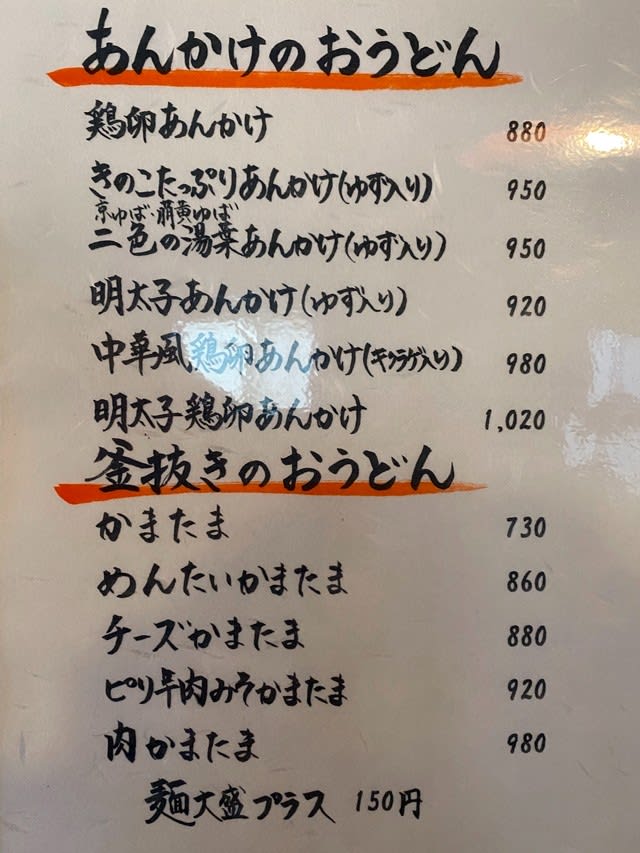 あんかけのおうどん
鶏卵あんかけ 880
きのこたっぷりあんかけ(ゆず入り) 950
京ゆば・萌黄ゆば
二色の湯葉あんかけ(ゆず入り) 950
明太子あんかけ(ゆず入り) 920
中華風鶏卵あんかけ(キクラゲ入り) 980
明太子鶏卵あんかけ 1,020
釜抜きのおうどん
かまたま 730
めんたいかまたま 860
チーズかまたま 880
ピリ辛肉みそかまたま 920
肉かまたま 980
麺大盛プラス 150円